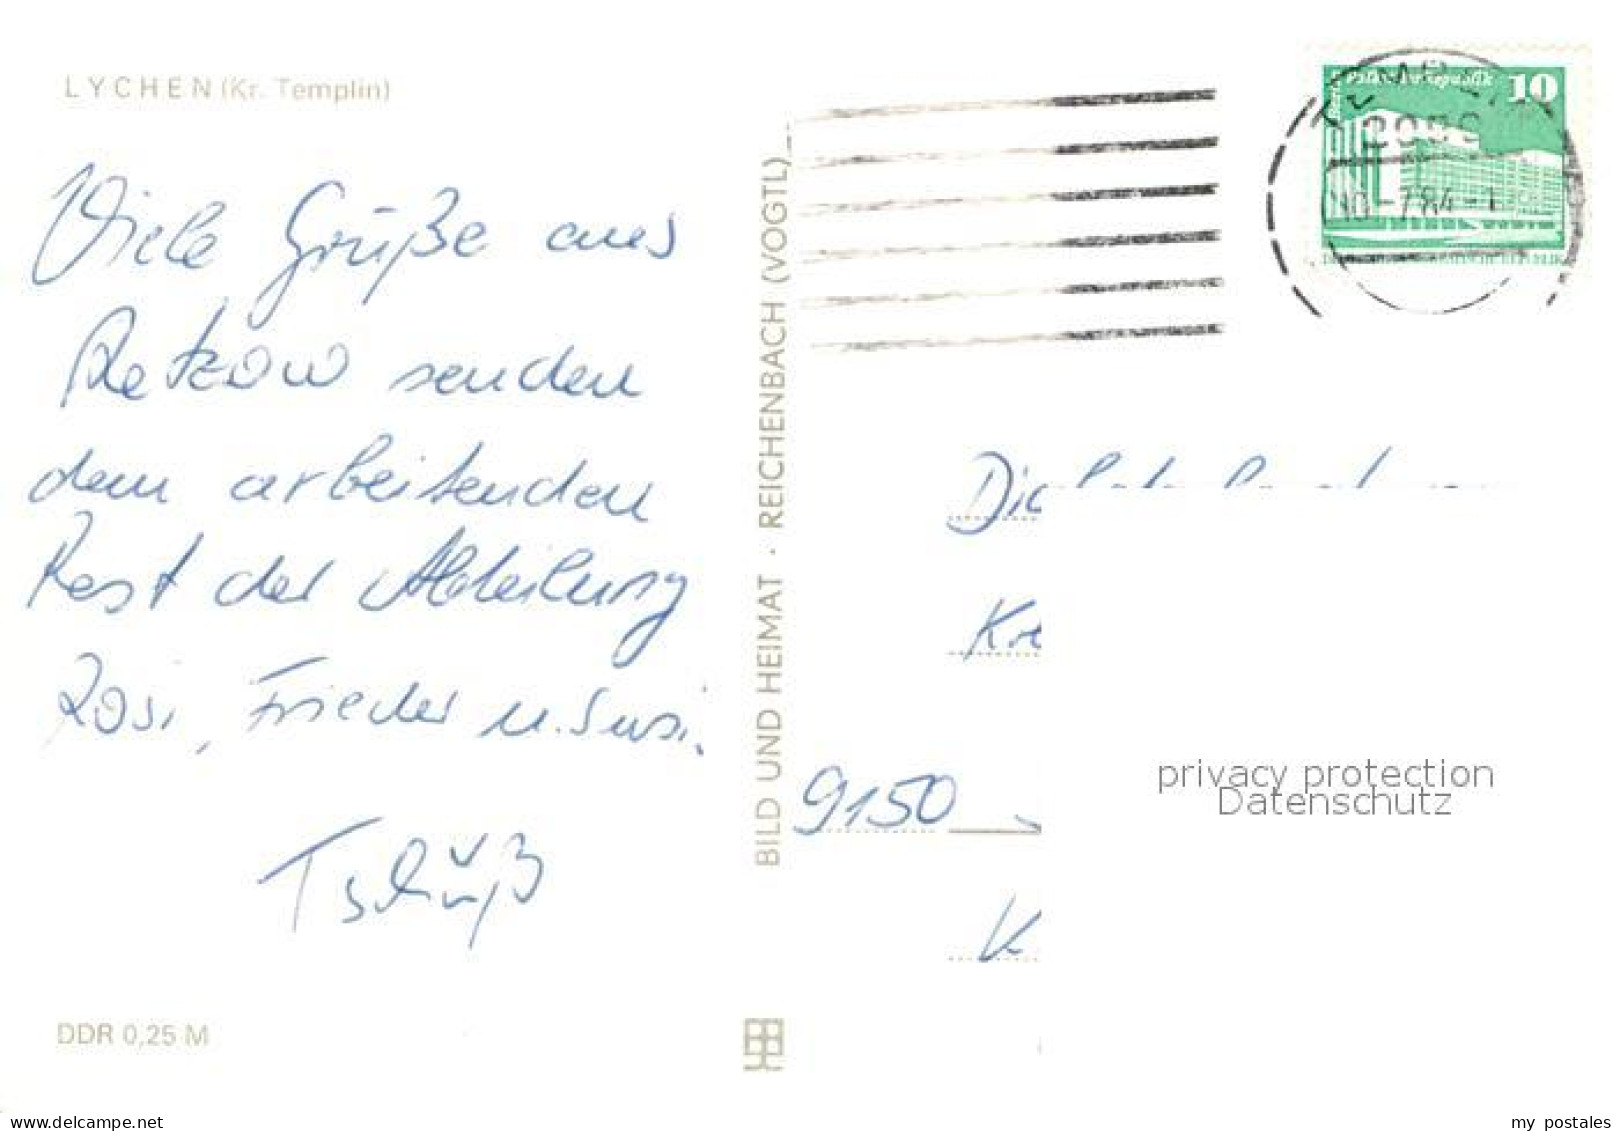 LYCHEN (Kr. Templin)
Viele Grüße aus
Retzow senden
dem arbeitenden
Rest der Abteilung
Rosi, Frieder u. Susi.
Tschüß
DDR 0,25 M
BILD UND HEIMAT · REICHENBACH (VOGTL)
10
10.-7.84-1
9150
privacy protection
Datenschutz
www.delcampe.net
my_postales